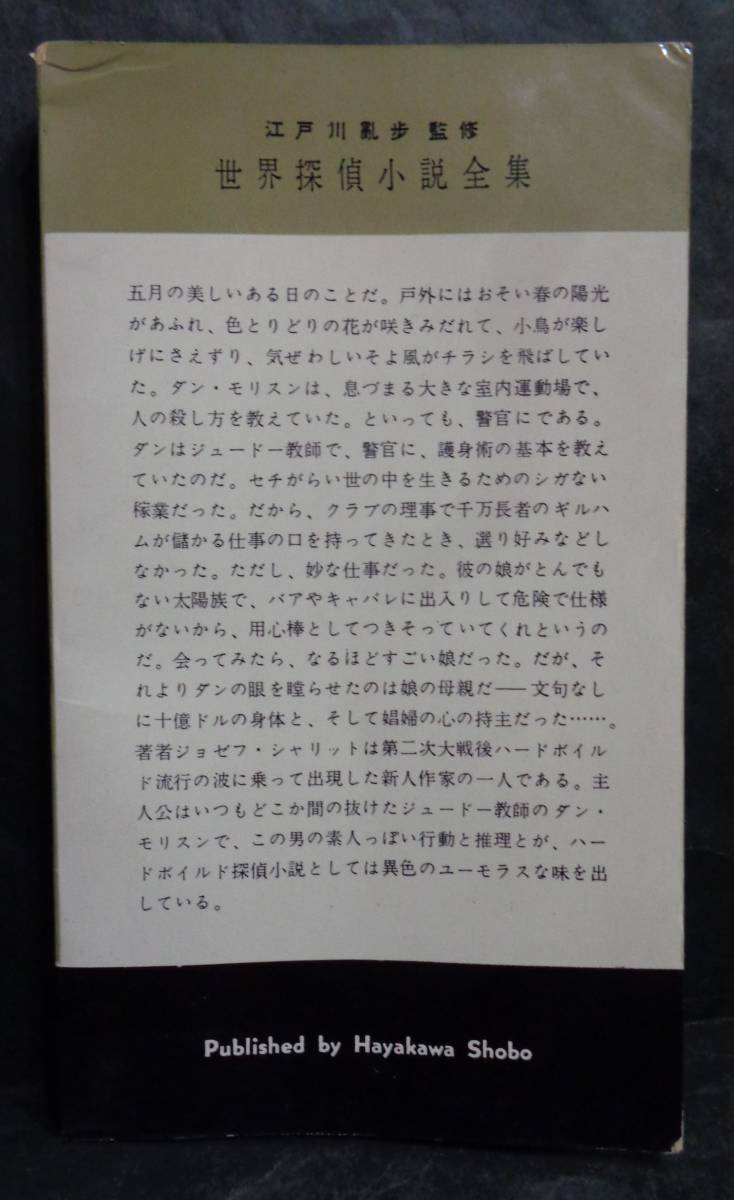 江戸川亂歩 監修
世界探偵小説全集
五月の美しいある日のことだ。戸外にはおそい春の陽光
があふれ、色とりどりの花が咲きみだれて、小鳥が楽し
げにさえずり、気ぜわしいそよ風がチラシを飛ばしてい
た。ダン・モリスンは、息づまる大きな室内運動場で、
人の殺し方を教えていた。といっても、警官にである。
ダンはジュードー教師で、警官に、護身術の基本を教え
ていたのだ。セチがらい世の中を生きるためのシガない
稼業だった。だから、クラブの理事で千万長者のギルハ
ムが儲かる仕事の口を持ってきたとき、選り好みなどし
なかった。ただし、妙な仕事だった。彼の娘がとんでも
ない太陽族で、バアやキャバレに出入りして危険で仕様
がないから、用心棒としてつきそっていてくれというの
だ。会ってみたら、なるほどすごい娘だった。だが、そ
れよりダンの眼を瞠らせたのは娘の母親だ——文句なし
に十億ドルの身体と、そして娼婦の心の持主だった……。
著者ジョゼフ・シャリットは第二次大戦後ハードボイル
ド流行の波に乗って出現した新人作家の一人である。主
人公はいつもどこか間の抜けたジュードー教師のダン・
モリスンで、この男の素人っぽい行動と推理とが、ハー
ドボイルド探偵小説としては異色のユーモラスな味を出
している。
Published by Hayakawa Shobo